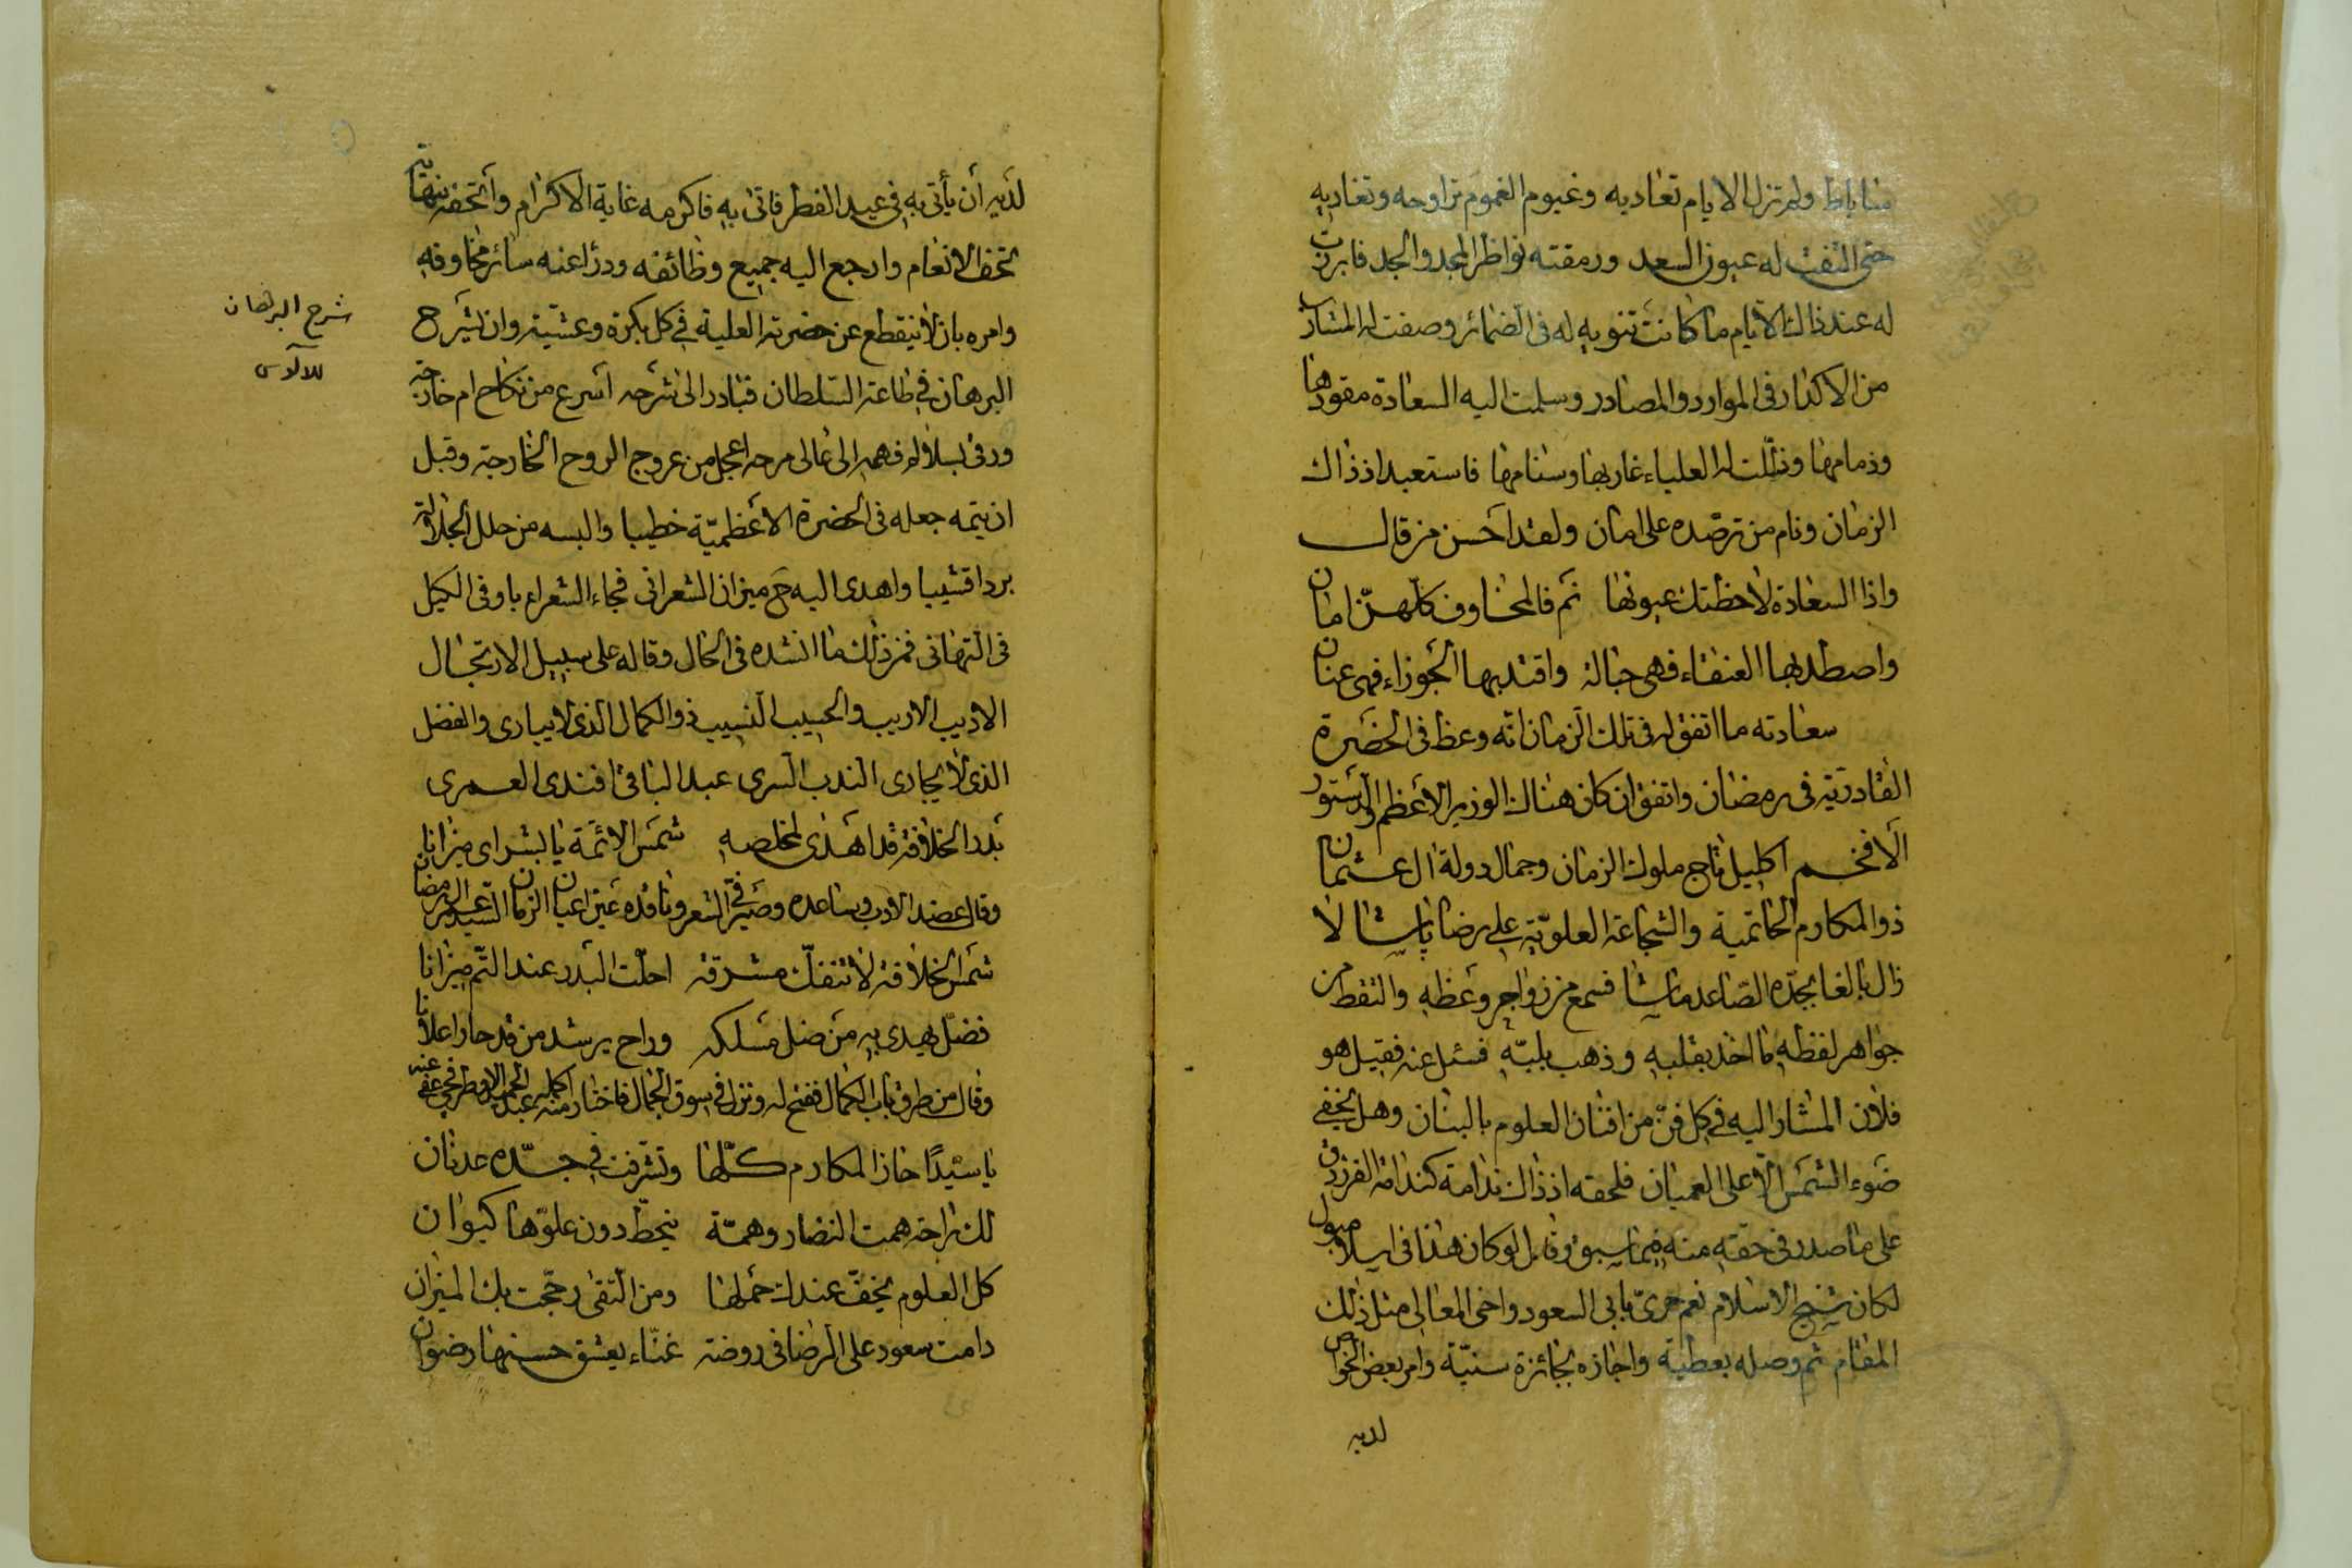 مناباط ولم تزل الايام تعاديه وغيوم الغموم تراوحه وتغاديه
حتى التفت له عيون السعد ورمقته نواظر المجد والجد فابرزت
له عند ذلك الايام ما كانت تنويه له فى الضمائر وصفت له المشارب
من الاكدار فى الموارد والمصادر وسلمت اليه السعادة مقودها
وزمامها وذللت له العلياء غاربها وسنامها فاستعبد اذ ذاك
الزمان ونام من ترصده على امان ولقد احسن من قال
واذا السعادة لاحظتك عيونها نم فالمخاوف كلهن امان
واصطد بها العنقاء فهى حبالة واقتد بها الجوزاء فهى عنان
سعادته ما اتفق له فى تلك الزمان انه وعظ فى الحضرة
القادرية فى رمضان واتفق ان كان هناك الوزير الاعظم والدستور
الافخم اكليل تاج ملوك الزمان وجمال دولة ال عثمان
ذو المكارم الحاتمية والشجاعة العلوية على رضا پاشا لا
زال بالغا بجده الصاعد ماشا فسمع من زواجر وعظه والتقط من
جواهر لفظه ما اخذ بقلبه وذهب بلبه فسئل عنه فقيل هو
فلان المشار اليه فى كل فن من افنان العلوم بالبنان وهل يخفى
ضوء الشمس الا على العميان فلحقه اذ ذاك ندامة كندامة الفرزدق
على ما صدر فى حقه منه فيما سبق وقال لو كان هذا فى اسلامبول
لكان شيخ الاسلام نعم حرى بابى السعود واخى المعالى مثل ذلك
المقام ثم وصله بعطية واجازه بجائزة سنية وامر بعض الخواص
لديه
لديه ان يأتى به فى عيد الفطر فاتى به فاكرمه غاية الاكرام واتحفه بنهاية
تحف الانعام وارجع اليه جميع وظائفه ودرا عنه سائر مخاوفه
وامره بان لا ينقطع عن حضرته العلية فى كل بكرة وعشية وان يشرح
شرح البرهان
للالوسى
البرهان فى طاعة السلطان فبادر الى شرحه اسرع من نكاح ام خارجة
ورقى بسلالم فهمه الى عالى صرحه اعجل من عروج الروح الخارجة وقبل
ان يتمه جعله فى الحضرة الاعظمية خطيبا والبسه من حلل الجلالة
بردا قشيبا واهدى اليه ح ميزان الشعرانى فجاء الشعراء باوفى الكيل
فى التهانى فمن ذلك ما انشده فى الحال وقاله على سبيل الارتجال
الاديب الاريب والحسيب النسيب ذو الكمال الذى لا يبارى والفضل
الذى لا يجارى الندب السرى عبد الباقى افندى العمرى
بدر الخلافة قد اهدى لمخلصه شمس الائمة يا بشراى ميزانا
وقال عضد الادب وساعده وصيرفى الشعر وناقده عين اعيان الزمان السيد عبد رمضان
شمس الخلافة لا تنفك مشرقة احلت البدر عند التم ميزانا
فضل يهدى به من ضل مسلكه وراح يرشد من قد حار اعلانا
وقال من طرق باب الكمال ففتح له ونزل فى سوق الجمال فاختار منه اكمله عبد الحميد الاطرقجى عفى عنه
يا سيدا حاز المكارم كلها وتشرفت فى جده عدنان
لك راحة همت النضار وهمة ينحط دون علوها كيوان
كل العلوم يخف عندك حملها ومن التقى رجحت بك الميزان
دامت سعود على الرضا فى روضة غناء يعشق حسنها رضوان